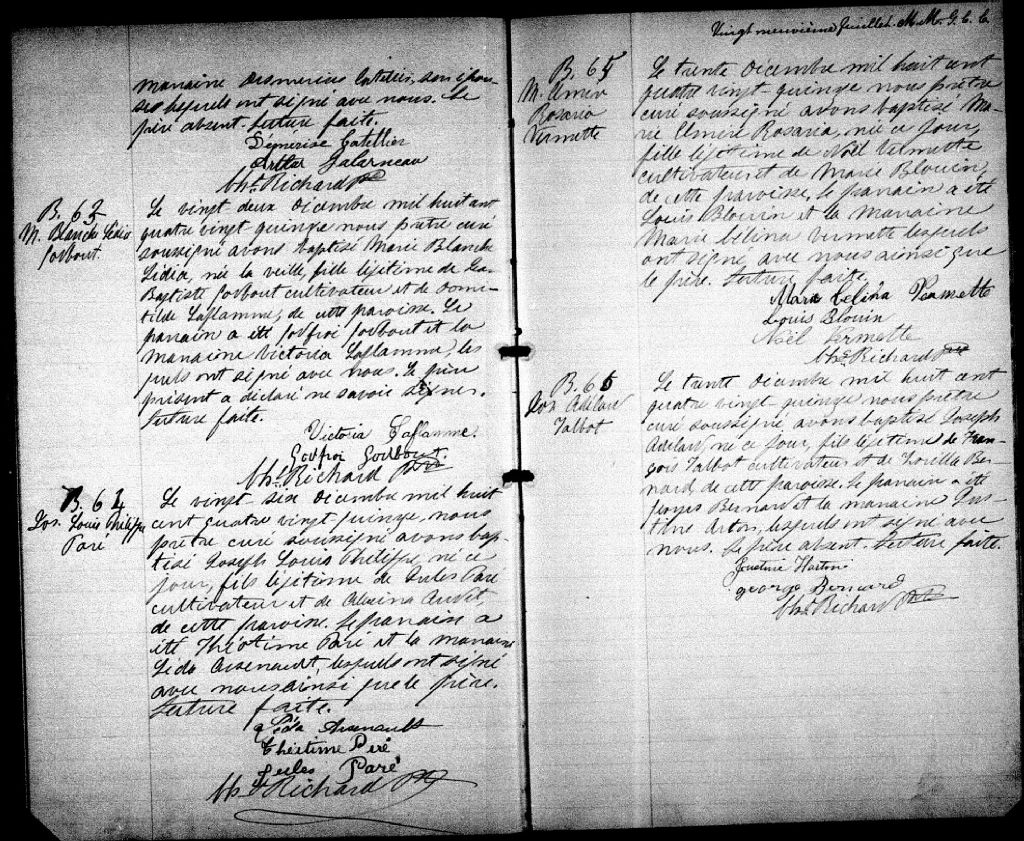 marraine Desmerise Letellier, son épou-
se, lesquels ont signé avec nous. Le
père absent. Lecture faite.
Demerise Latellier
Arthur Galarneau
Chs. Richard Ptre
B. 63
M. Blanche Lidia
Godbout.
Le vingt-deux décembre mil huit cent
quatre vingt quinze nous prêtre curé
soussigné avons baptisé Marie Blanche
Lidia, née la veille, fille légitime de Jean
Baptiste Godbout cultivateur et de Domi-
tilde Laflamme, de cette paroisse. Le
parrain a été Godfroi Godbout et la
marraine Victoria Laflamme, les
quels ont signé avec nous. Le père
présent a déclaré ne savoir signer.
Lecture faite.
Victoria Laflamme.
Godfroi Godbout.
Chs. Richard Ptre
B. 64
Jos. Louis Philippe
Paré
Le vingt six décembre mil huit
cent quatre vingt-quinze, nous
prêtre curé soussigné avons bap-
tisé Joseph Louis Philippe né ce
jour, fils légitime de Jules Paré
cultivateur et de
de cette paroisse. Le parrain a
été Théotime Paré et la marraine
Léda Arsenault, lesquels ont signé
avec nous ainsi que le père.
Lecture faite.
Léda Arsenault
Théotime Paré
Jules Paré
Chs. Richard Ptre
Vingt neuvième feuillet. M. M. G. C. C.
B. 65
M. Elmire
Rosaria
Vermette
Le trente décembre mil huit cent
quatre vingt quinze nous prêtre
curé soussigné avons baptisé Ma-
rie Elmire Rosaria, née ce jour,
fille légitime de Noël Vermette
cultivateur et de Marie Blouin,
de cette paroisse. Le parrain a été
Louis Blouin et la marraine
Marie Célina Vermette lesquels
ont signé avec nous ainsi que
le père. Lecture faite.
Marie Celina Vermette
Louis Blouin
Noël Vermette
Chs. Richard Ptre
B. 66
Jos. Adélard
Talbot
Le trente décembre mil huit cent
quatre vingt-quinze nous prêtre
curé soussigné avons baptisé Joseph
Adélard, né ce jour, fils légitime de Fran-
çois Talbot cultivateur et de Zoëlla Ber-
nard, de cette paroisse. Le parrain a été
Georges Bernard et la marraine Jus-
tine Arton, lesquels ont signé avec
nous. Le père absent. Lecture faite.
Justine Harton
george Bernard
Chs. Richard Ptre